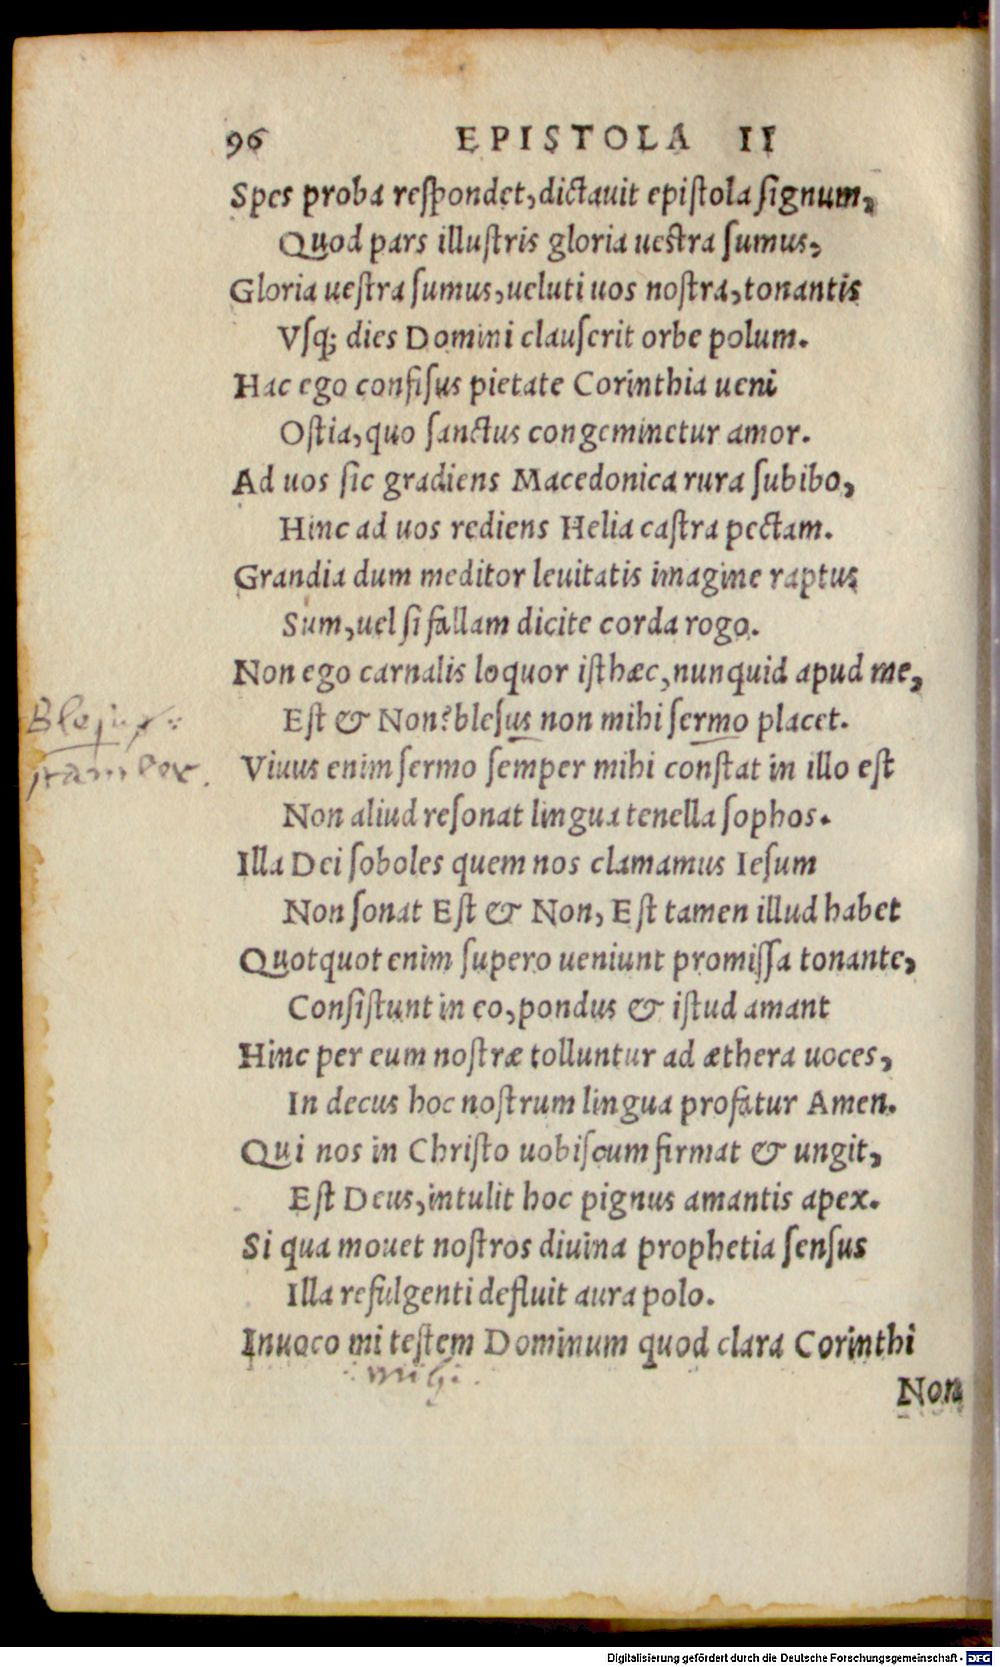 96 EPISTOLA II
Spes proba respondet, dictauit epistola signum,
Quod pars illustris gloria uestra sumus,
Gloria uestra sumus, ueluti uos nostra, tonantis
Vsq; dies Domini clauserit orbe polum.
Hac ego confisus pietate Corinthia ueni
Ostia, quo sanctus congeminetur amor.
Ad uos sic gradiens Macedonica rura subibo,
Hinc ad uos rediens Helia castra pectam.
Grandia dum meditor leuitatis imagine raptus
Sum, uel si fallam dicite corda rogo.
Non ego carnalis loquor isthæc, nunquid apud me,
Est & Non? blesus non mihi sermo placet.
Blesus
Viuus enim sermo semper mihi constat in illo est
Non aliud resonat lingua tenella sophos.
Illa Dei soboles quem nos clamamus Iesum
Non sonat Est & Non, Est tamen illud habet
Quotquot enim supero ueniunt promissa tonante,
Consistunt in eo, pondus & istud amant
Hinc per eum nostræ tolluntur ad æthera uoces,
In decus hoc nostrum lingua profatur Amen.
Qui nos in Christo uobiscum firmat & ungit,
Est Deus, intulit hoc pignus amantis apex.
Si qua mouet nostros diuina prophetia sensus
Illa refulgenti defluit aura polo.
Inuoco mi testem Dominum quod clara Corinthi
mihi.
Non
Digitalisierung gefördert durch die Deutsche Forschungsgemeinschaft - DFG